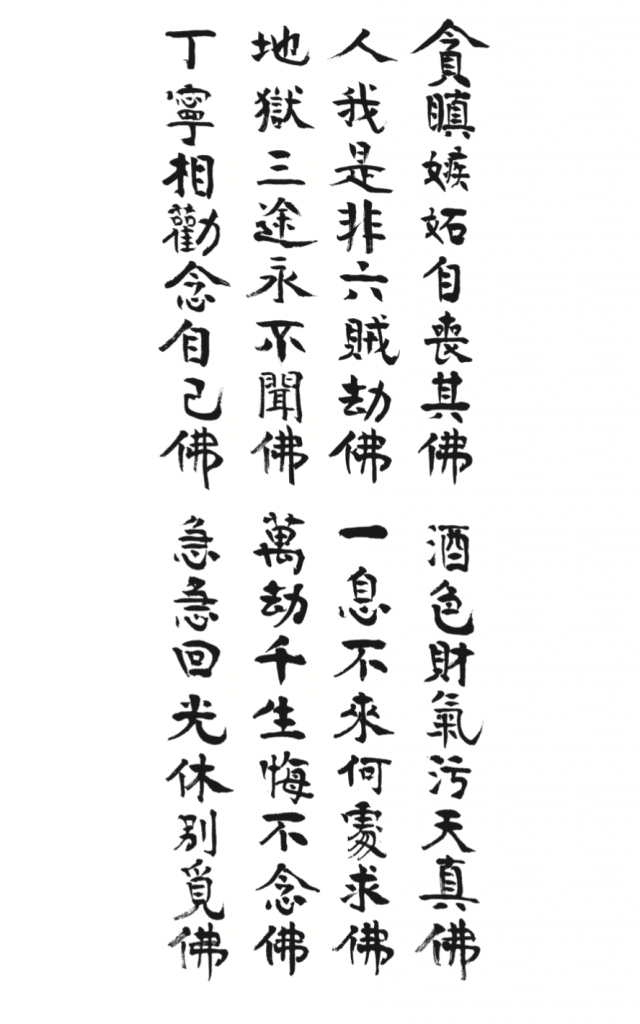 貪瞋嫉妬自喪其佛
酒色財氣污天真佛
人我是非六賊劫佛
一息不來何處求佛
地獄三途永不聞佛
萬劫千生悔不念佛
丁寧相勸念自己佛
急急回光休別覓佛